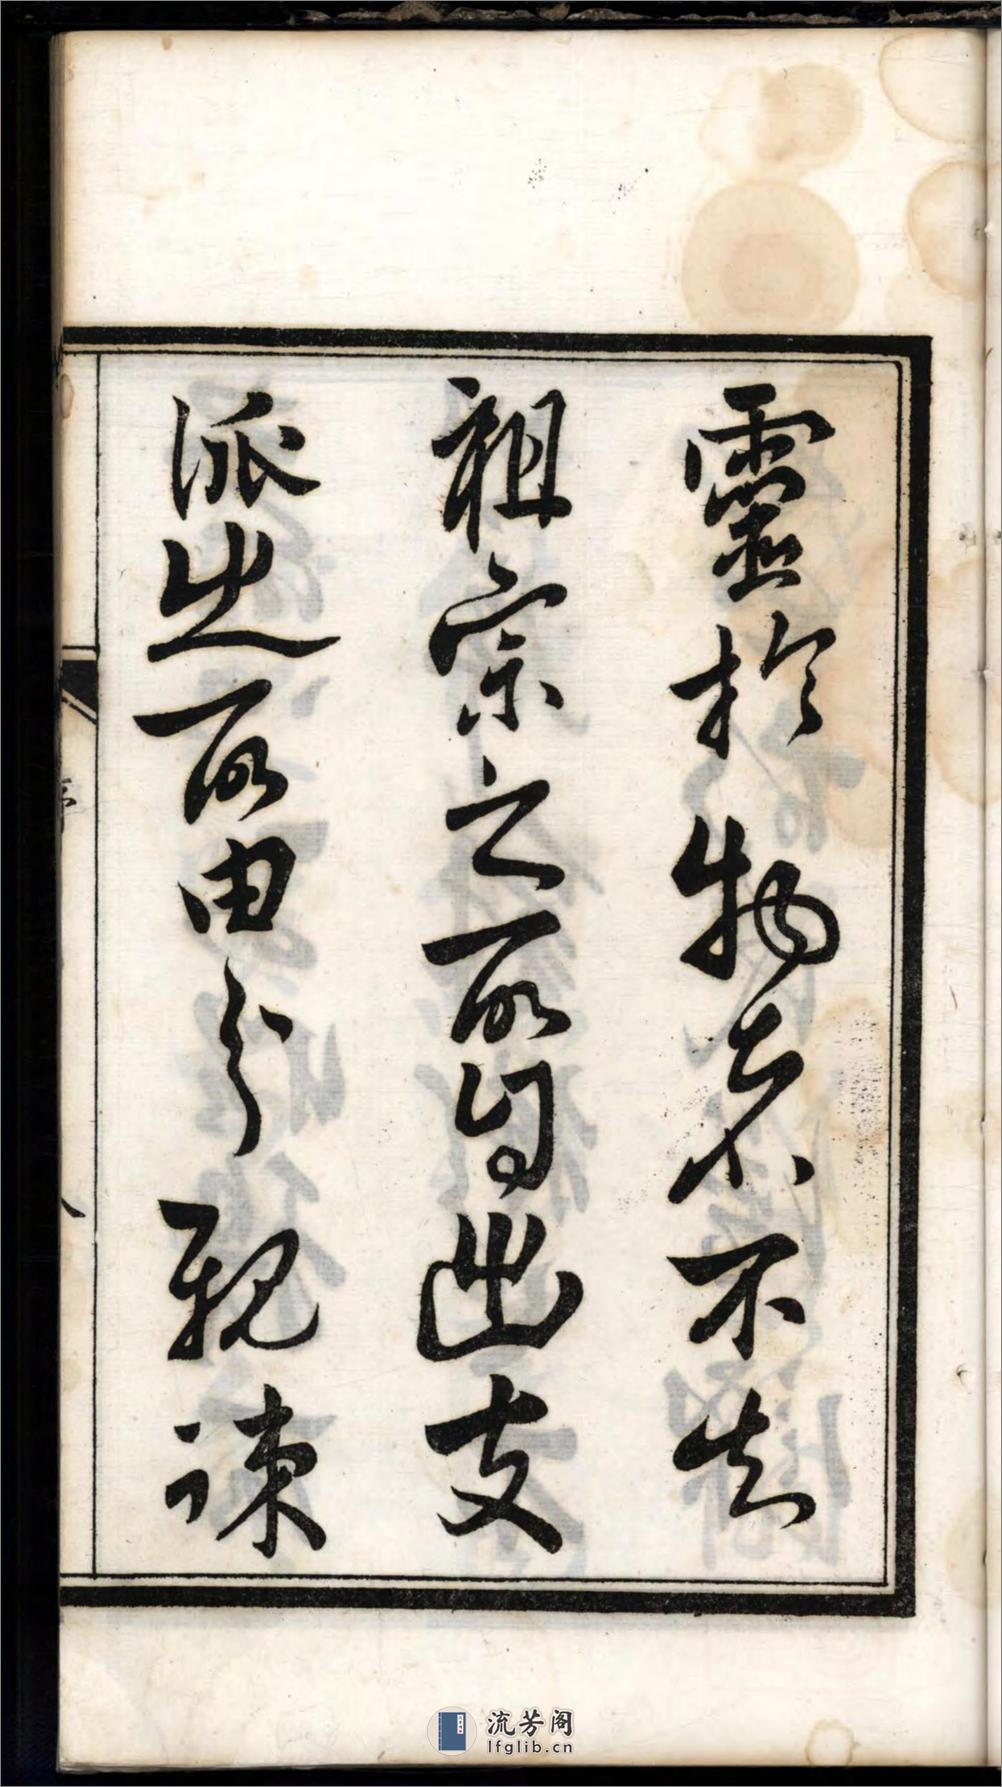 靈於物者不知
祖宗之所自出支
派之所由分親疎
流芳阁
lfglib.cn